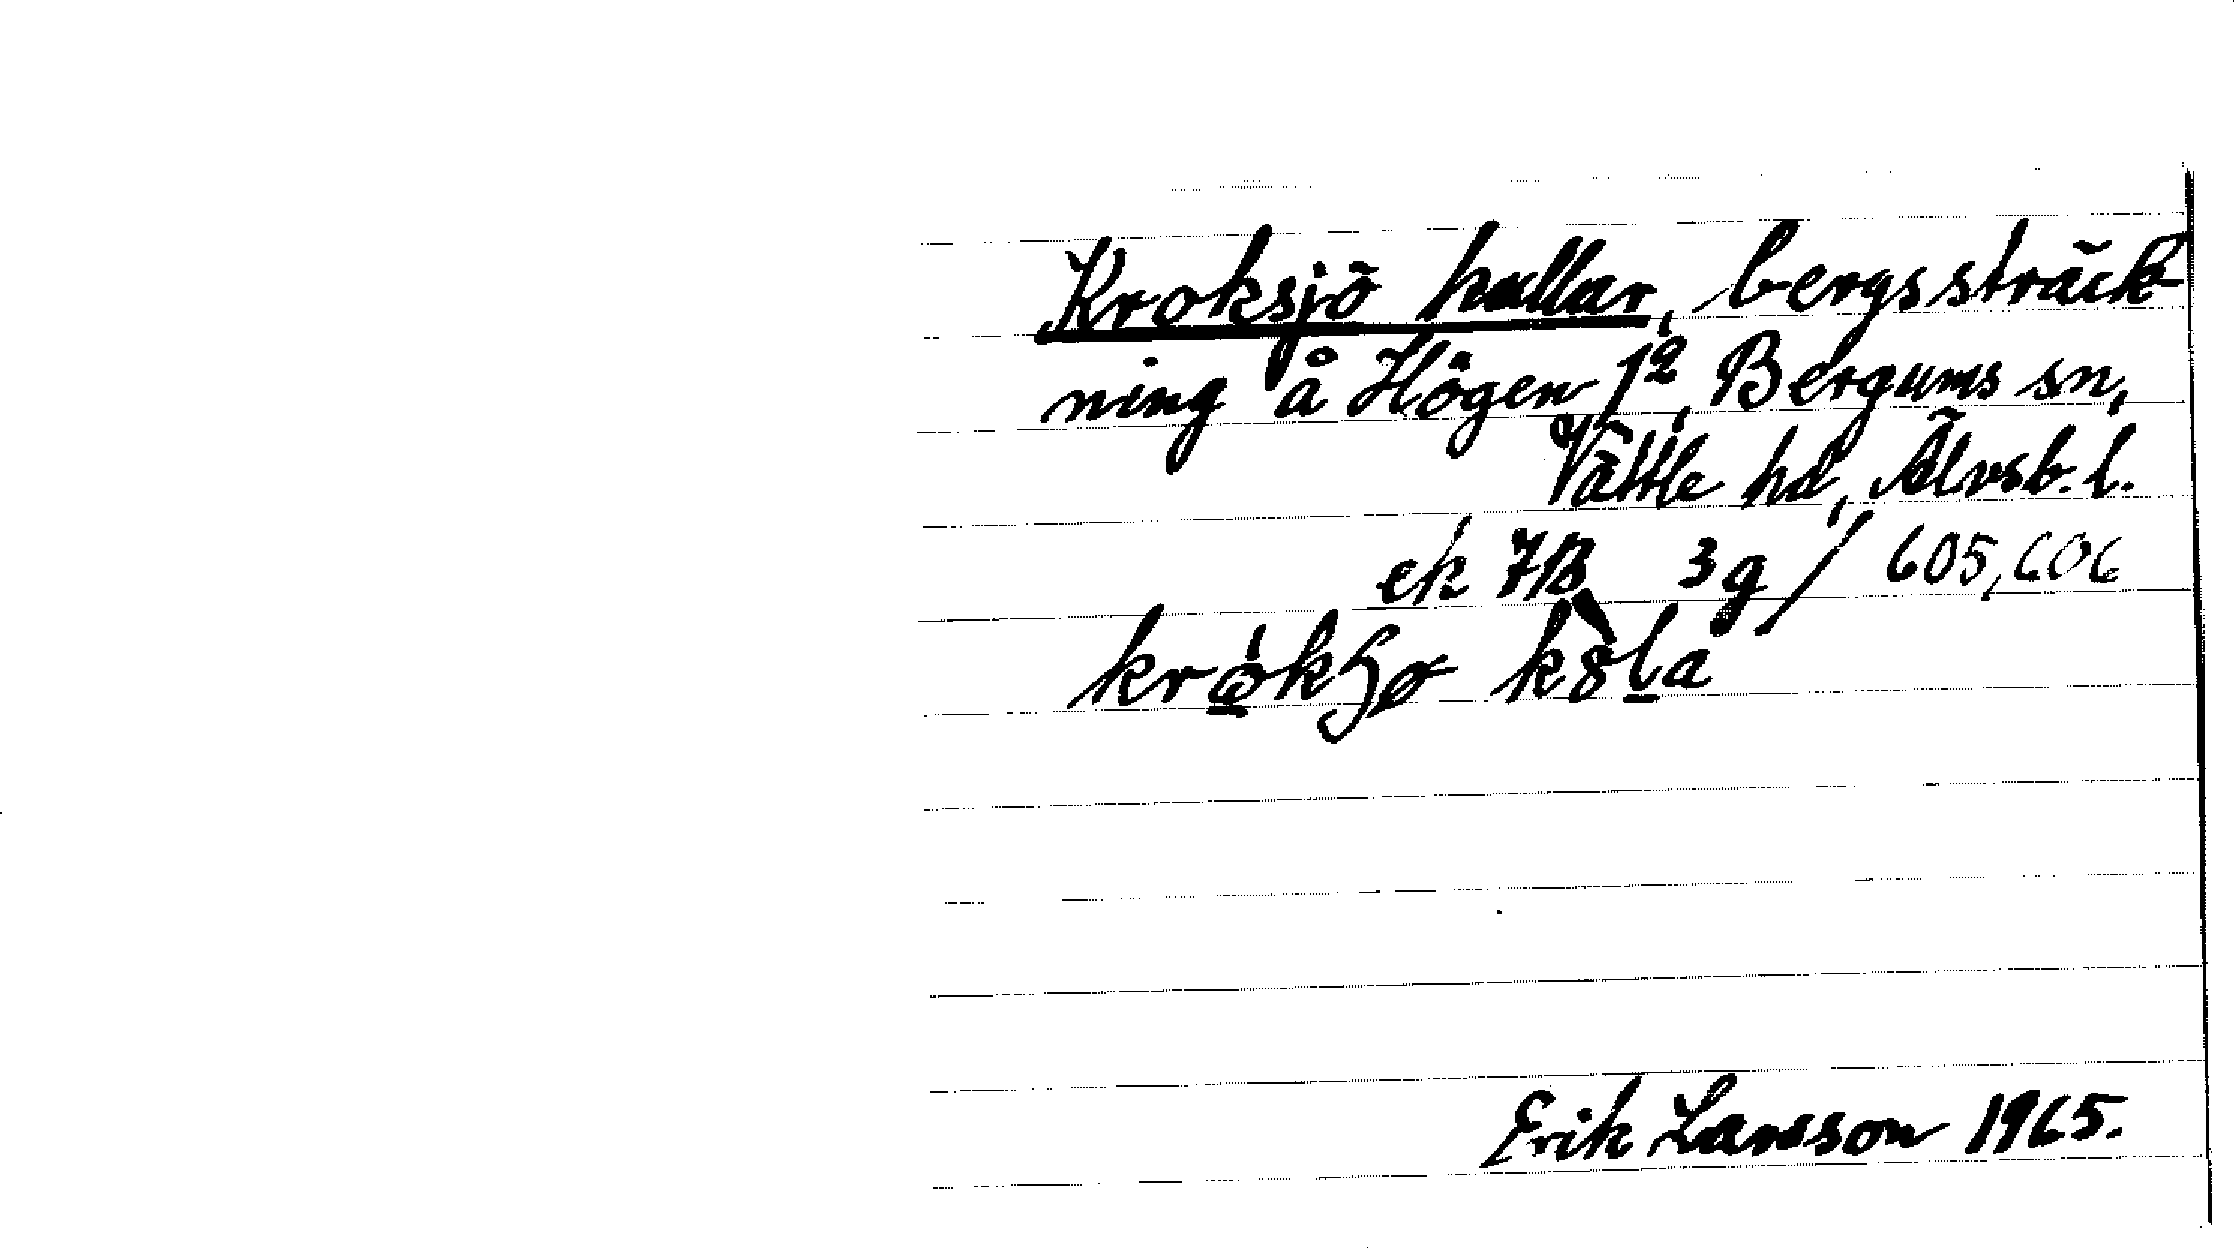 Kroksjö kullar, bergssträck-
ning å Högen 1², Bergums sn,
Vättle hd, Älvsb. l.
ek 7B 3g / 605,606
Erik Larsson 1965.